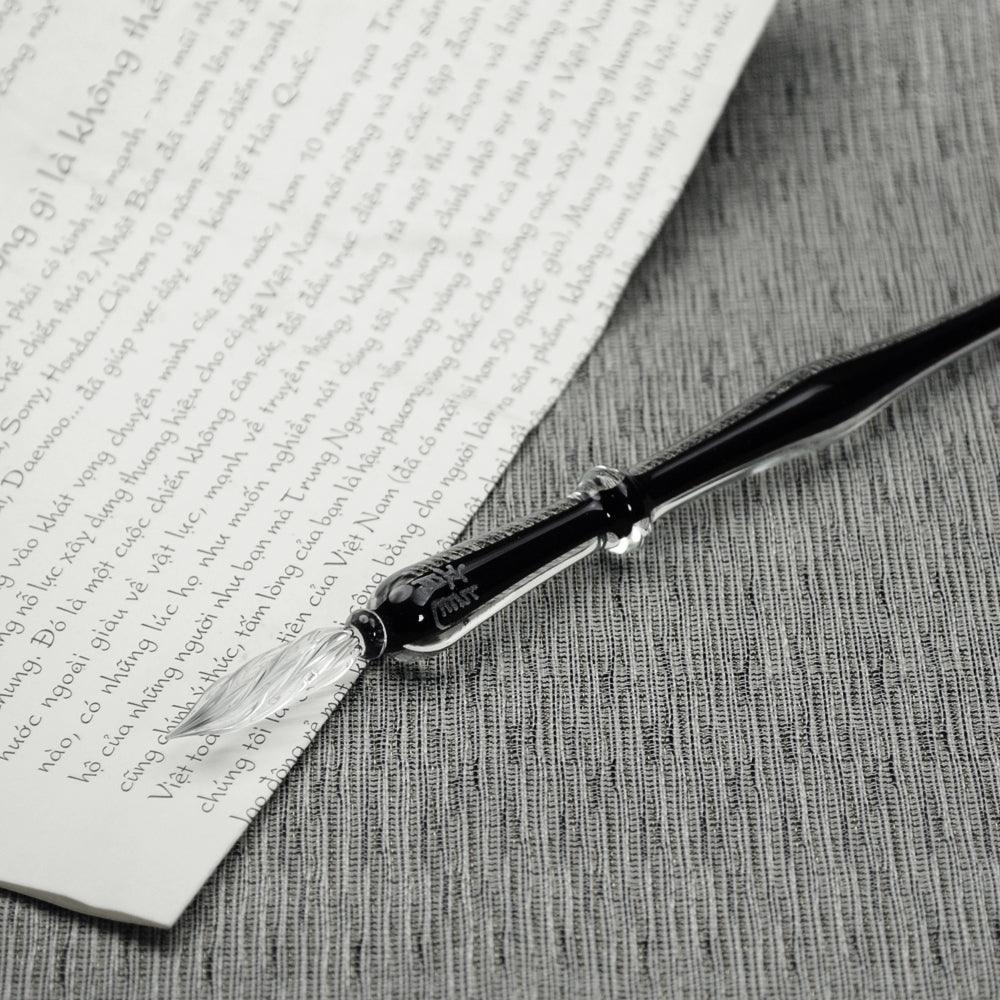 ng gì là không thể
n phải có kinh tế mạnh - với mỗi nh
chế chiến thứ 2, Nhật Bản đã vươn lên từ đ
, Sony, Honda... Chỉ hơn 10 năm sau chiến tranh
n, Daewoo... đã giúp vực dậy nền kinh tế Hàn Quốc.
g vào khát vọng chuyển mình của đất nước, hơn 10 năm qua Tr
ng nỗ lực xây dựng thương hiệu cho cà phê Việt Nam nói riêng và nông sản
hưng. Đó là một cuộc chiến không cân sức, đối đầu trực diện với các tập đoàn
nước ngoài giàu về vật lực, mạnh về truyền thông, không từ một thủ đoạn và biện
nào, có những lúc họ như muốn nghiền nát chúng tôi. Nhưng chính nhờ sự tin tưởng v
hộ của những người như bạn mà Trung Nguyên ổn vững vàng ở vị trí cà phê số 1 Việt Nam
cũng chính ý thức, tấm lòng của bạn là hậu phương vững chắc cho công cuộc xây dựng thương h
Việt toà tiên của Việt Nam (đã có mặt tại hơn 50 quốc gia). Mong muốn tột bậc củ
chúng tôi là công bằng cho người làm ra sản phẩm, không cam tâm tiếp tục bán sức
lao động rẻ mạt